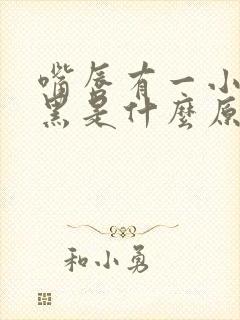 嘴唇有一小
黑是什麼原
和小勇